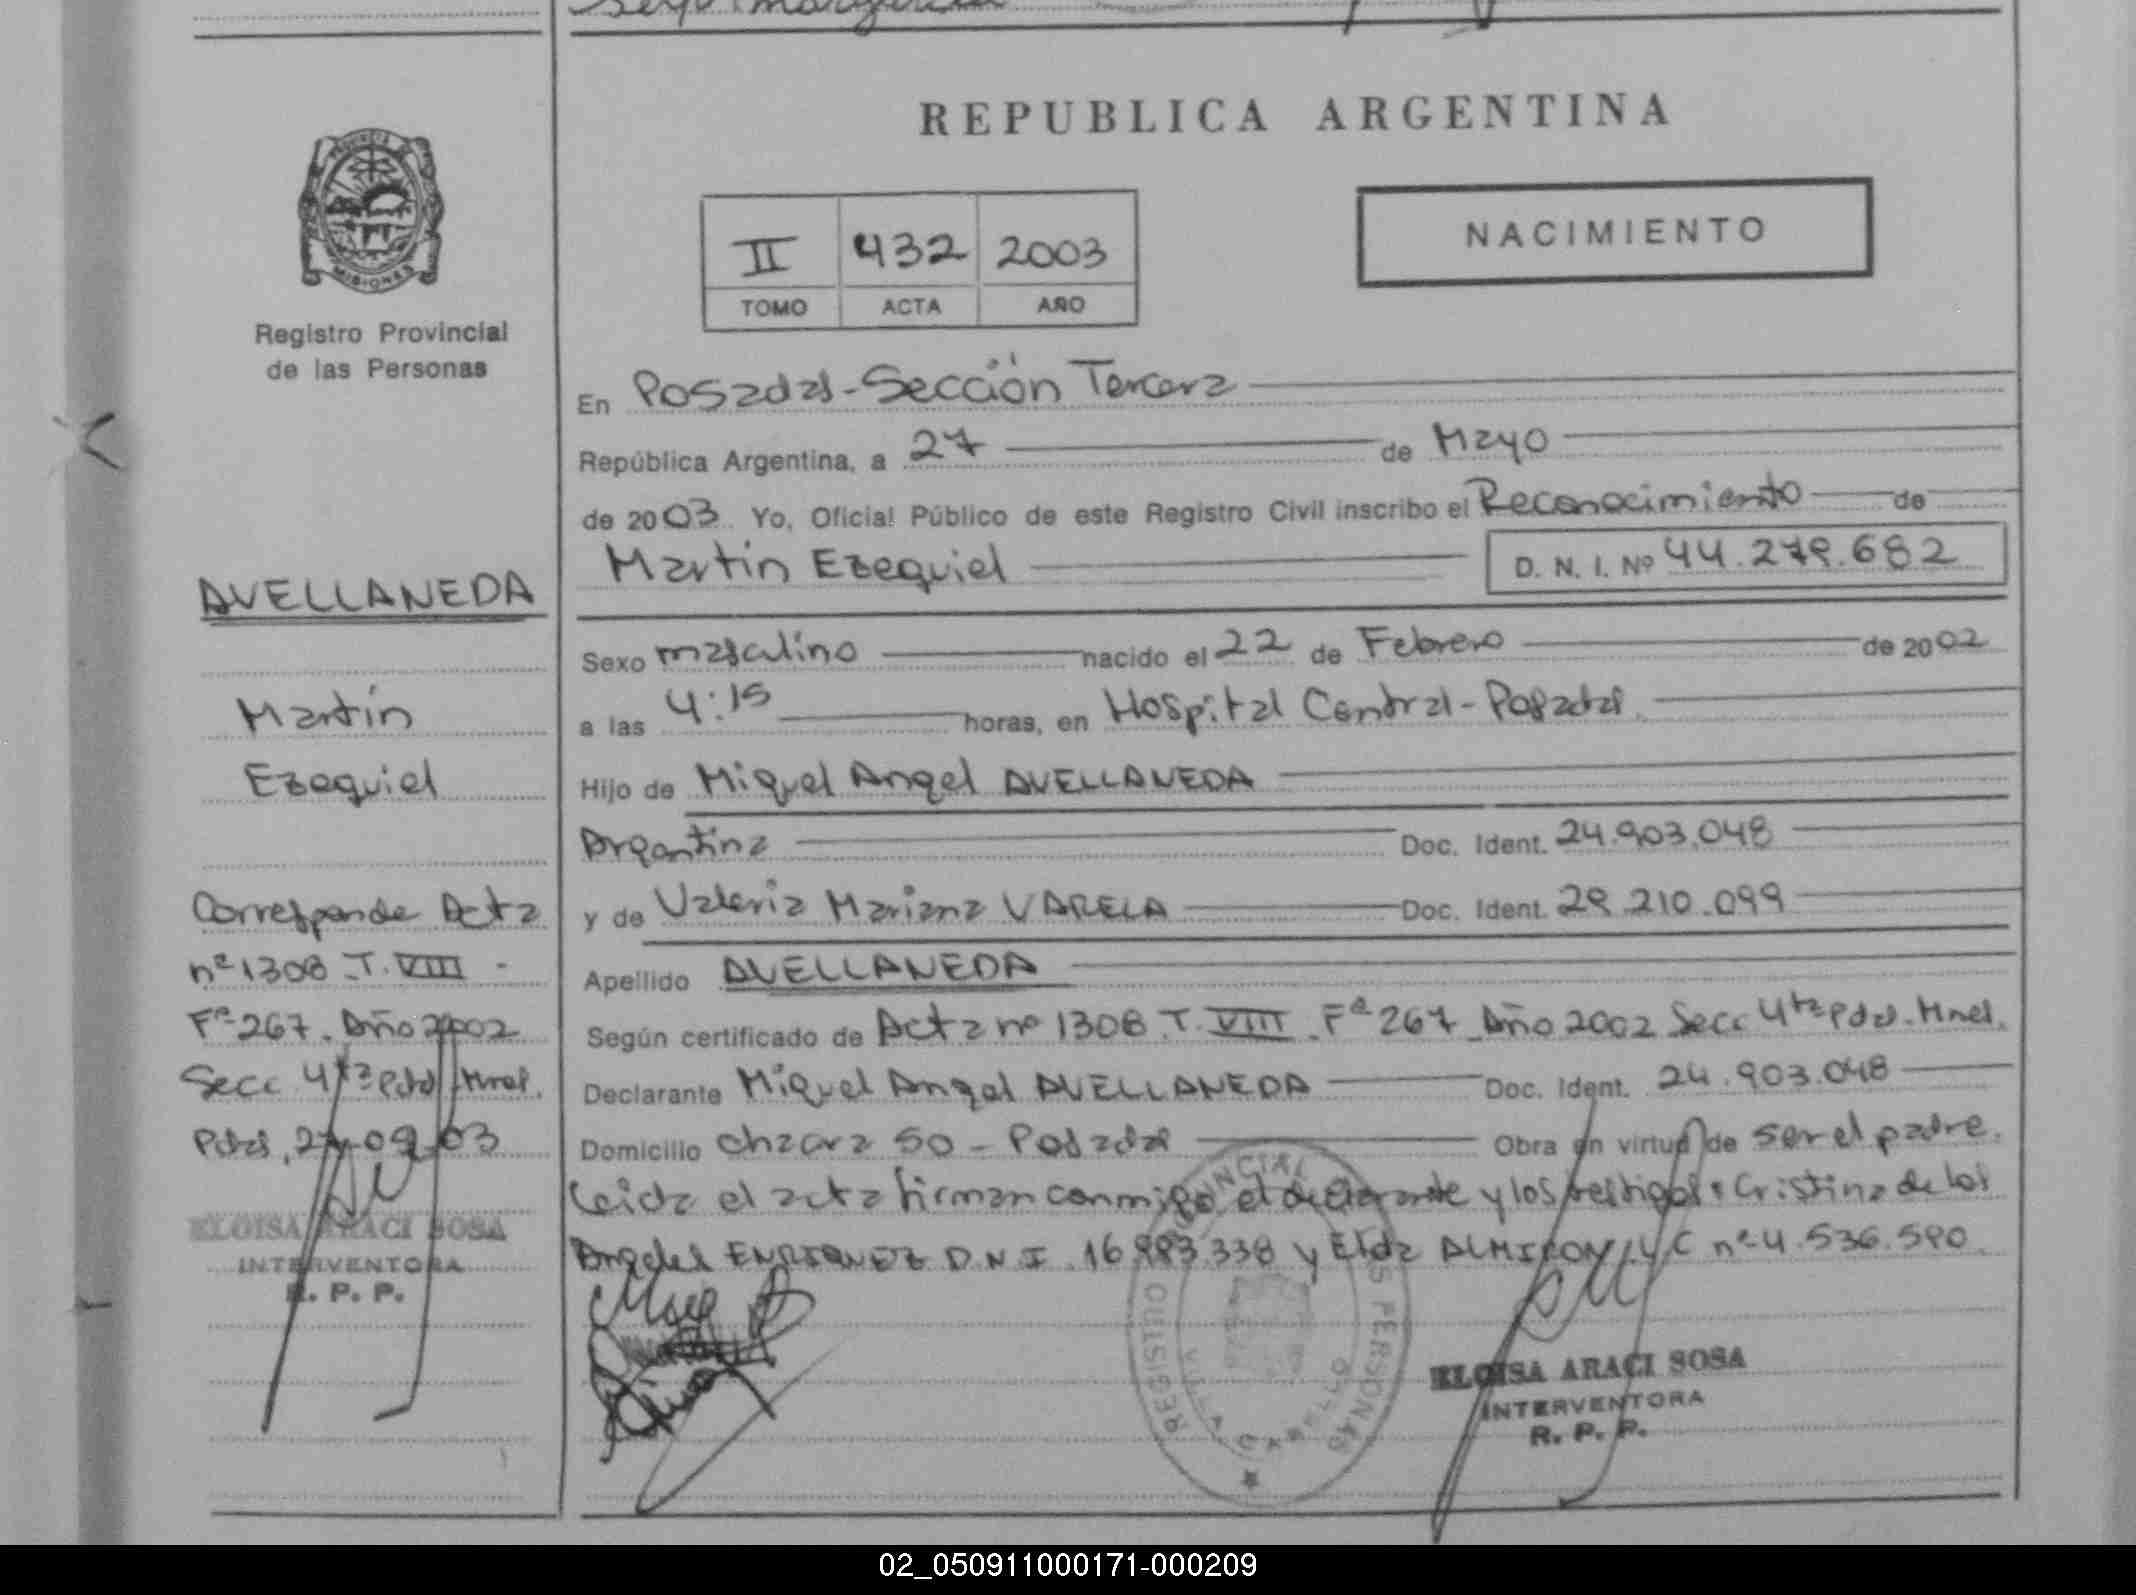 REPUBLICA ARGENTINA
NACIMIENTO
II 432 2003
TOMO ACTA AÑO
MISIONES
Registro Provincial
de las Personas
AVELLANEDA
Martín
Ezequiel
Corresponde Acta
nº 1308 T. VIII -
Fº 267. Año 2002
Secc 4ta Pdas. Mnes.
Pdas, 27-09-03
ELOISA ARACI SOSA
INTERVENTORA
R. P. P.
En Posadas - Sección Tercera
República Argentina, a 27 de Mayo
de 2003. Yo, Oficial Público de este Registro Civil inscribo el Reconocimiento de
Martín Ezequiel D. N. I. Nº 44.279.682
Sexo masculino nacido el 22 de Febrero de 2002
a las 4:15 horas, en Hospital Central - Posadas.
Hijo de Miguel Angel AVELLANEDA
Argentina Doc. Ident. 24.903.048
y de Valeria Mariana VARELA Doc. Ident. 29.210.099
Apellido AVELLANEDA
Según certificado de Acta nº 1308 T. VIII. Fº 267 Año 2002 Secc 4ta Pdas. Mnes.
Declarante Miguel Angel AVELLANEDA Doc. Ident. 24.903.048
Domicilio chacra 50 - Posadas Obra en virtud de ser el padre.
Leída el acta firman conmigo el declarante y los testigos: Cristina de los
Angeles ENRIQUEZ D.N.I. 16.993.338 y Elda ALMIRON L.C nº 4.536.590
REGISTRO PROVINCIAL DE LAS PERSONAS
VILLA CABELLO
ELOISA ARACI SOSA
INTERVENTORA
R. P. P.
02_050911000171-000209